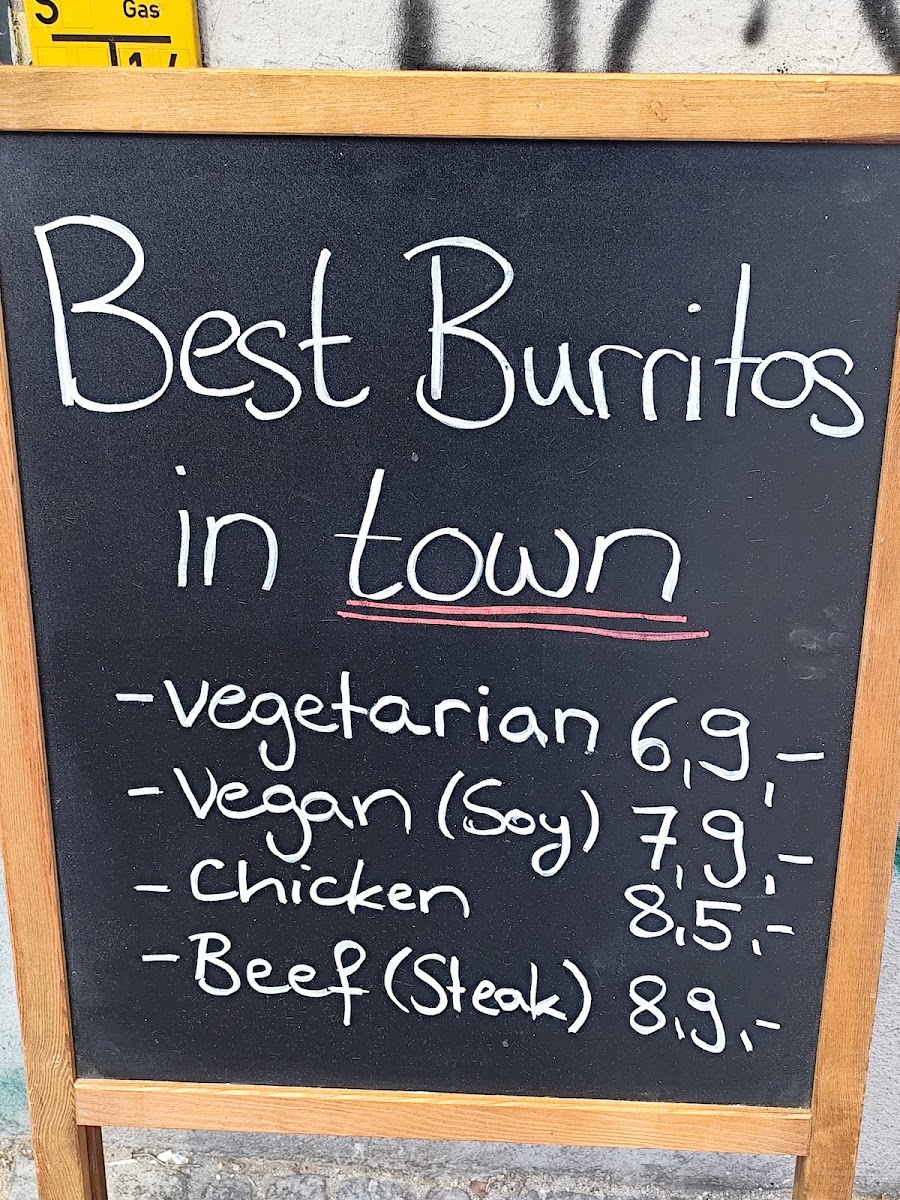 S Gas
Best Burritos
in town
- vegetarian 6,9,-
- Vegan (Soy) 7,9,-
- Chicken 8,5,-
- Beef (Steak) 8,9,-